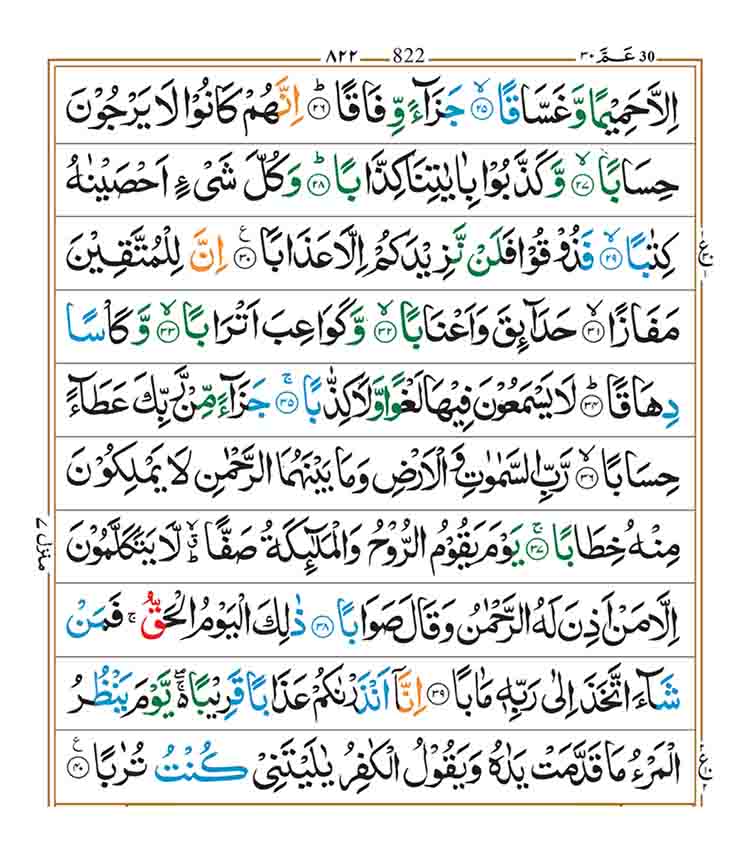 30 عَـمَّ ٣٠ 822 ٨٢٢
اِلَّا حَمِيْمًا وَّ غَسَّاقًا ۙ﴿۲۵﴾ جَزَآءً وِّفَاقًا ؕ﴿۲۶﴾ اِنَّهُمْ كَانُوْا لَا يَرْجُوْنَ
حِسَابًا ۙ﴿۲۷﴾ وَّ كَذَّبُوْا بِاٰيٰتِنَا كِذَّابًا ؕ﴿۲۸﴾ وَ كُلَّ شَیْءٍ اَحْصَيْنٰهُ
كِتٰبًا ۙ﴿۲۹﴾ فَذُوْقُوْا فَلَنْ نَّزِيْدَكُمْ اِلَّا عَذَابًا ﴿۳۰﴾ ع اِنَّ لِلْمُتَّقِيْنَ
مَفَازًا ۙ﴿۳۱﴾ حَدَآئِقَ وَ اَعْنَابًا ۙ﴿۳۲﴾ وَّ كَوَاعِبَ اَتْرَابًا ۙ﴿۳۳﴾ وَّ كَاْسًا
دِهَاقًا ؕ﴿۳۴﴾ لَا يَسْمَعُوْنَ فِيْهَا لَغْوًا وَّ لَا كِذّٰبًا ۚ﴿۳۵﴾ جَزَآءً مِّنْ رَّبِّكَ عَطَآءً
حِسَابًا ۙ﴿۳۶﴾ رَّبِّ السَّمٰوٰتِ وَ الْاَرْضِ وَ مَا بَيْنَهُمَا الرَّحْمٰنِ لَا يَمْلِكُوْنَ
مِنْهُ خِطَابًا ۚ﴿۳۷﴾ يَوْمَ يَقُوْمُ الرُّوْحُ وَ الْمَلٰٓئِكَةُ صَفًّا ؕۙ لَّا يَتَكَلَّمُوْنَ
منزل ٧
اِلَّا مَنْ اَذِنَ لَهُ الرَّحْمٰنُ وَ قَالَ صَوَابًا ﴿۳۸﴾ ذٰلِكَ الْيَوْمُ الْحَقُّ ۚ فَمَنْ
شَآءَ اتَّخَذَ اِلٰى رَبِّهٖ مَاٰبًا ﴿۳۹﴾ اِنَّاۤ اَنْذَرْنٰكُمْ عَذَابًا قَرِيْبًا ۖۚ۬ يَّوْمَ يَنْظُرُ
الْمَرْءُ مَا قَدَّمَتْ يَدٰهُ وَ يَقُوْلُ الْكٰفِرُ يٰلَيْتَنِیْ كُنْتُ تُرٰبًا ﴿۴۰﴾ ع